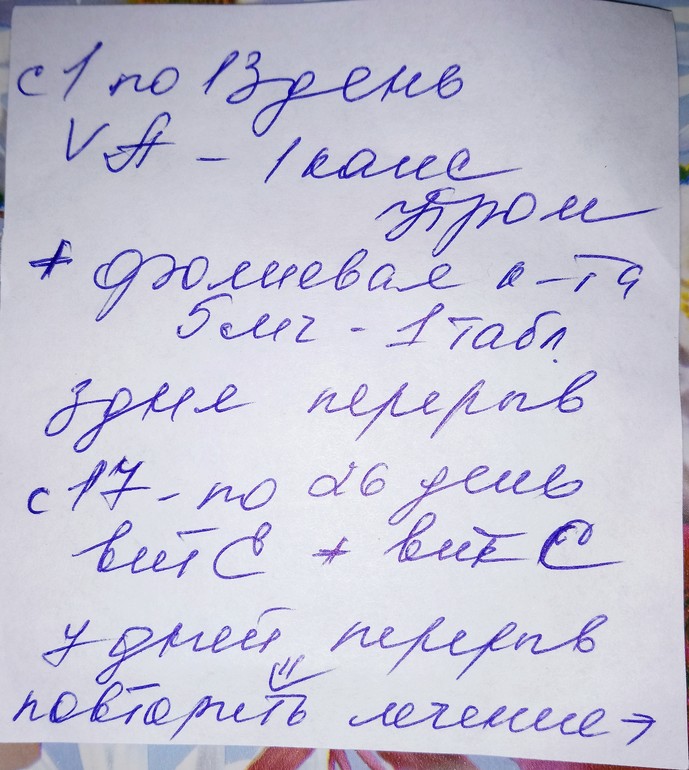 с 1 по 13 день
V A - 1 капс
утром
+ фолиевая к-та
5 мг - 1 табл.
3 дня перерыв
с 17 - по 26 день
вит E + вит C
7 дней перерыв
повторить лечение →